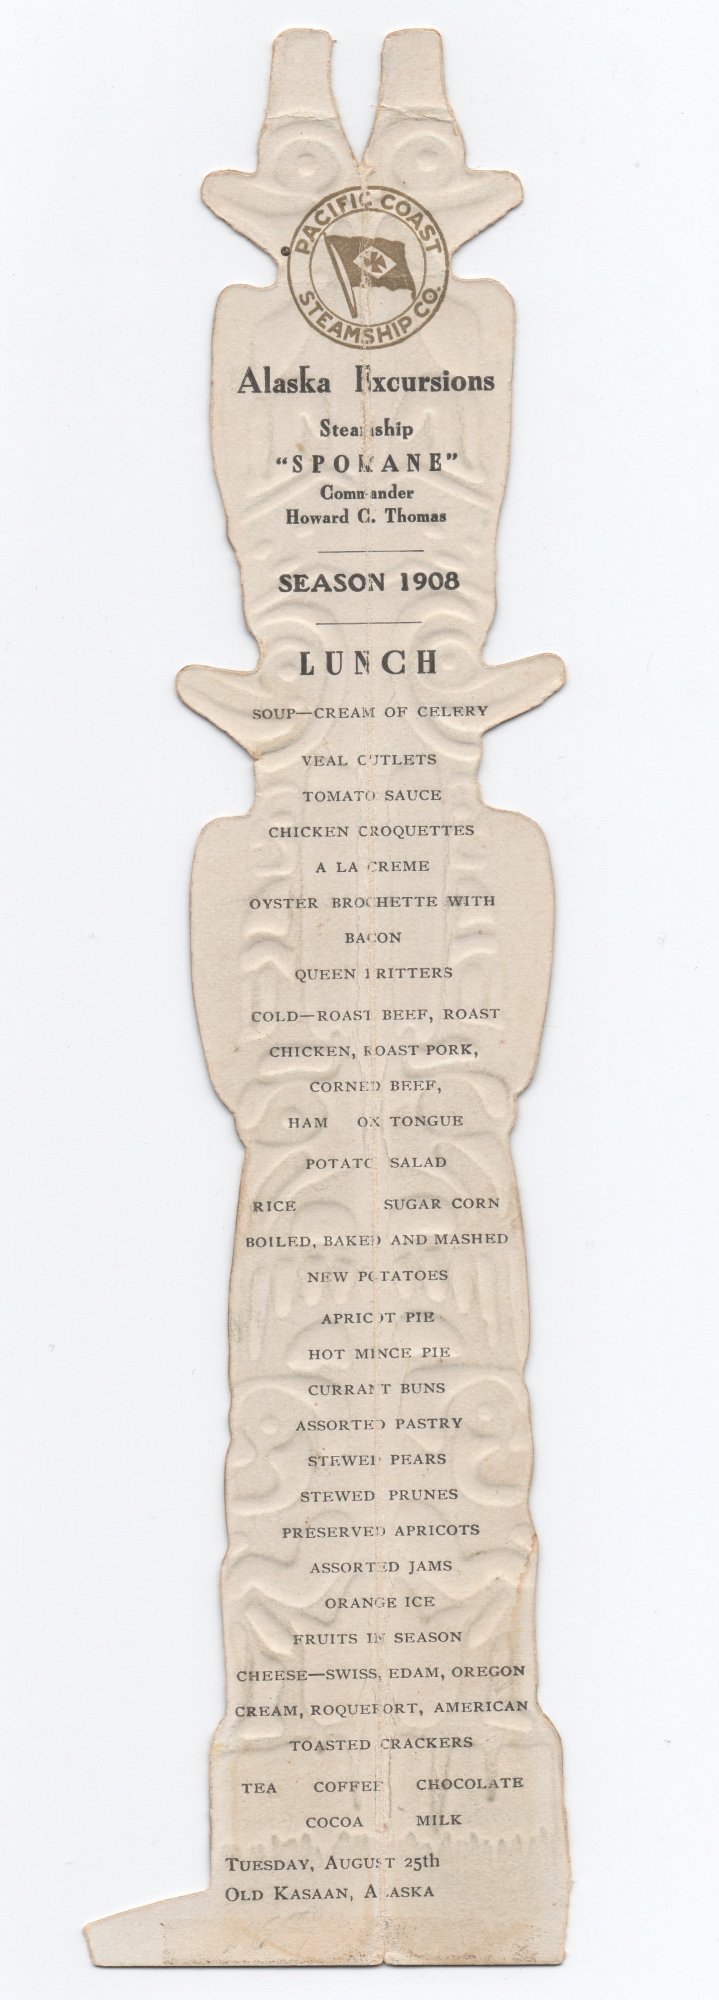 PACIFIC COAST
STEAMSHIP CO.
Alaska Excursions
Steamship
"SPOKANE"
Commander
Howard C. Thomas
SEASON 1908
LUNCH
SOUP—CREAM OF CELERY
VEAL CUTLETS
TOMATO SAUCE
CHICKEN CROQUETTES
A LA CREME
OYSTER BROCHETTE WITH
BACON
QUEEN FRITTERS
COLD—ROAST BEEF, ROAST
CHICKEN, ROAST PORK,
CORNED BEEF,
HAM OX TONGUE
POTATO SALAD
RICE SUGAR CORN
BOILED, BAKED AND MASHED
NEW POTATOES
APRICOT PIE
HOT MINCE PIE
CURRANT BUNS
ASSORTED PASTRY
STEWED PEARS
STEWED PRUNES
PRESERVED APRICOTS
ASSORTED JAMS
ORANGE ICE
FRUITS IN SEASON
CHEESE—SWISS, EDAM, OREGON
CREAM, ROQUEFORT, AMERICAN
TOASTED CRACKERS
TEA COFFEE CHOCOLATE
COCOA MILK
TUESDAY, AUGUST 25th
OLD KASAAN, ALASKA